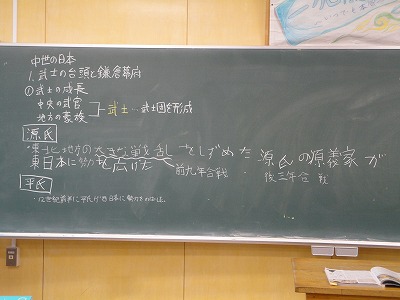 中世の日本
1. 武士の台頭と鎌倉幕府
① 武士の成長
中央の武官
地方の豪族
武士…武士団を形成
源氏
・東北地方の大きな戦乱をしずめた源氏の源義家が
東日本に勢力を広げた
前九年合戦・後三年合戦
平氏
・12世紀前半に平氏が西日本に勢力を